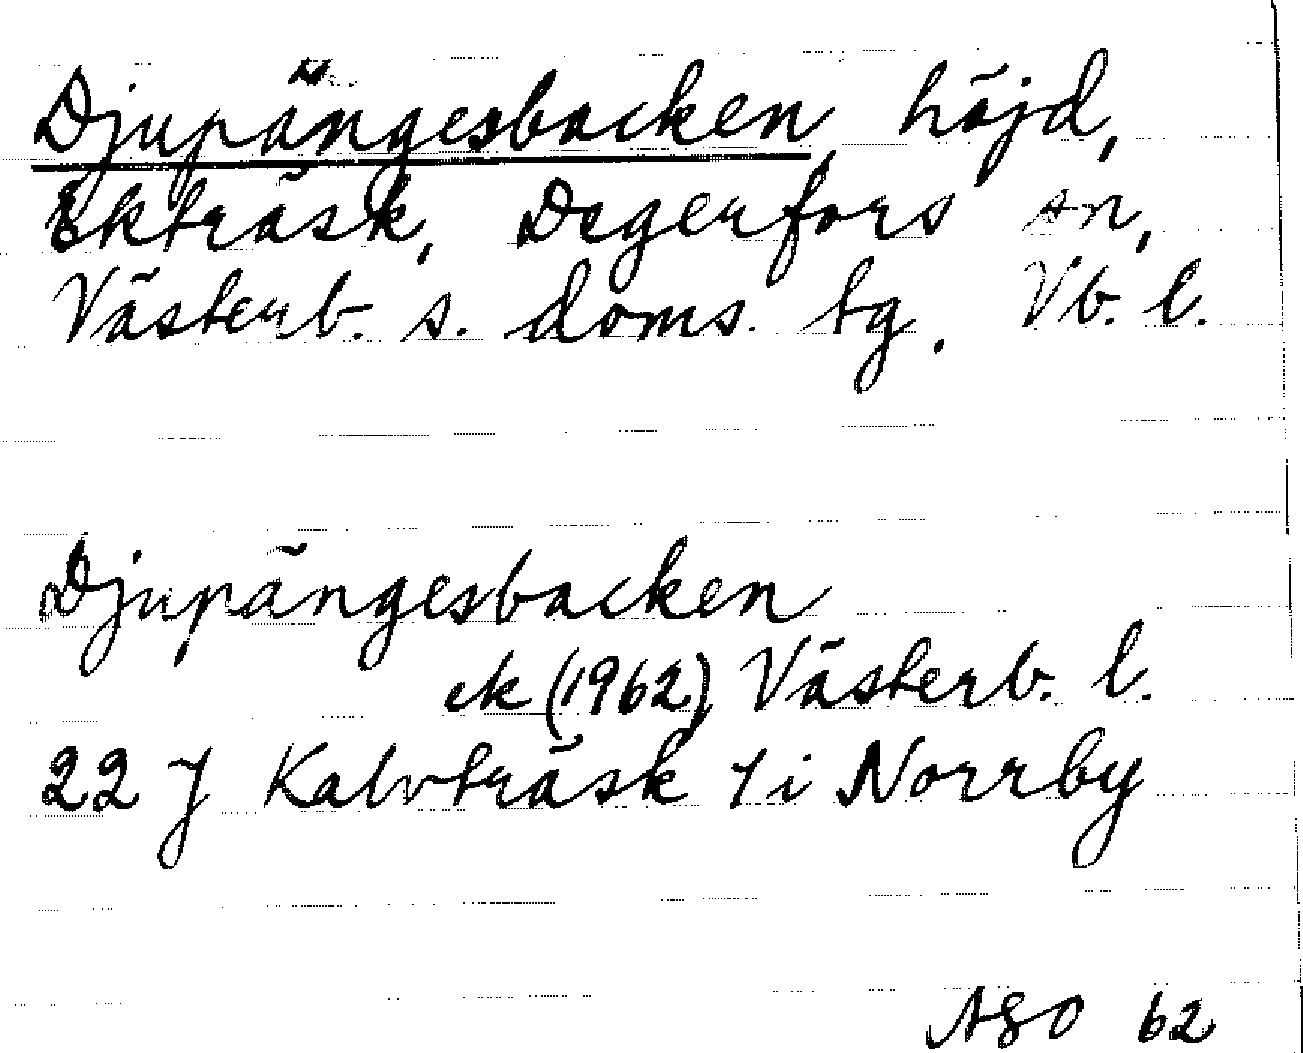 Djupängesbacken, höjd,
Ekträsk, Degerfors sn,
Västerb. s. doms. tg. Vb. l.
Djupängesbacken
ek (1962) Västerb. l.
22 J Kalvträsk 7 i Norrby
62